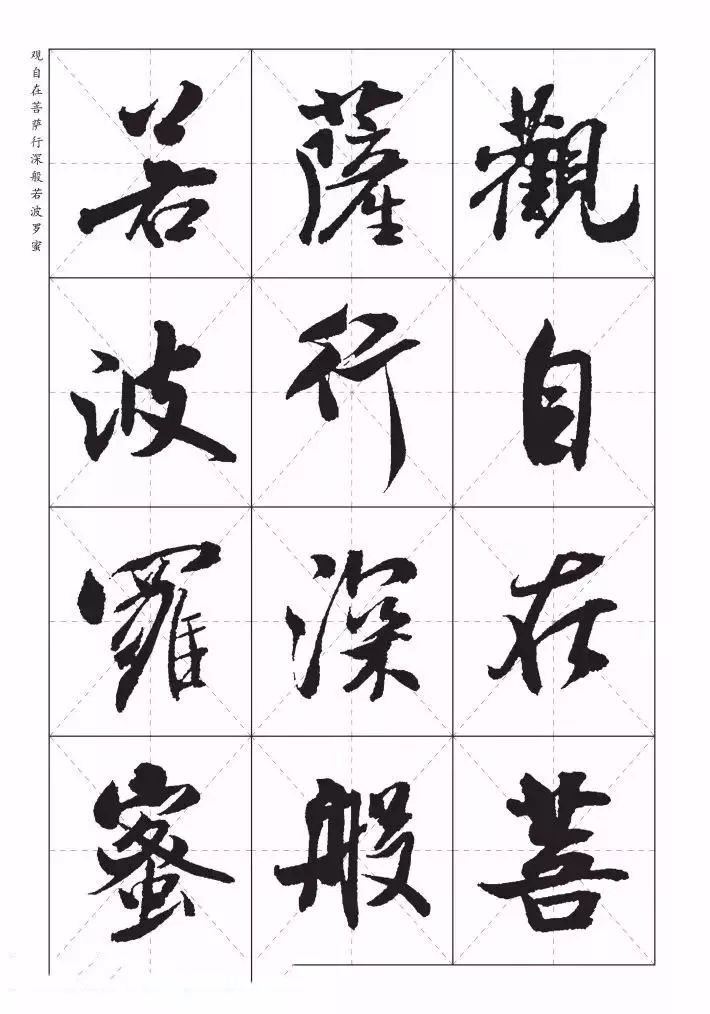 观自在菩萨行深般若波罗蜜
觀自在菩
薩行深般
若波羅蜜